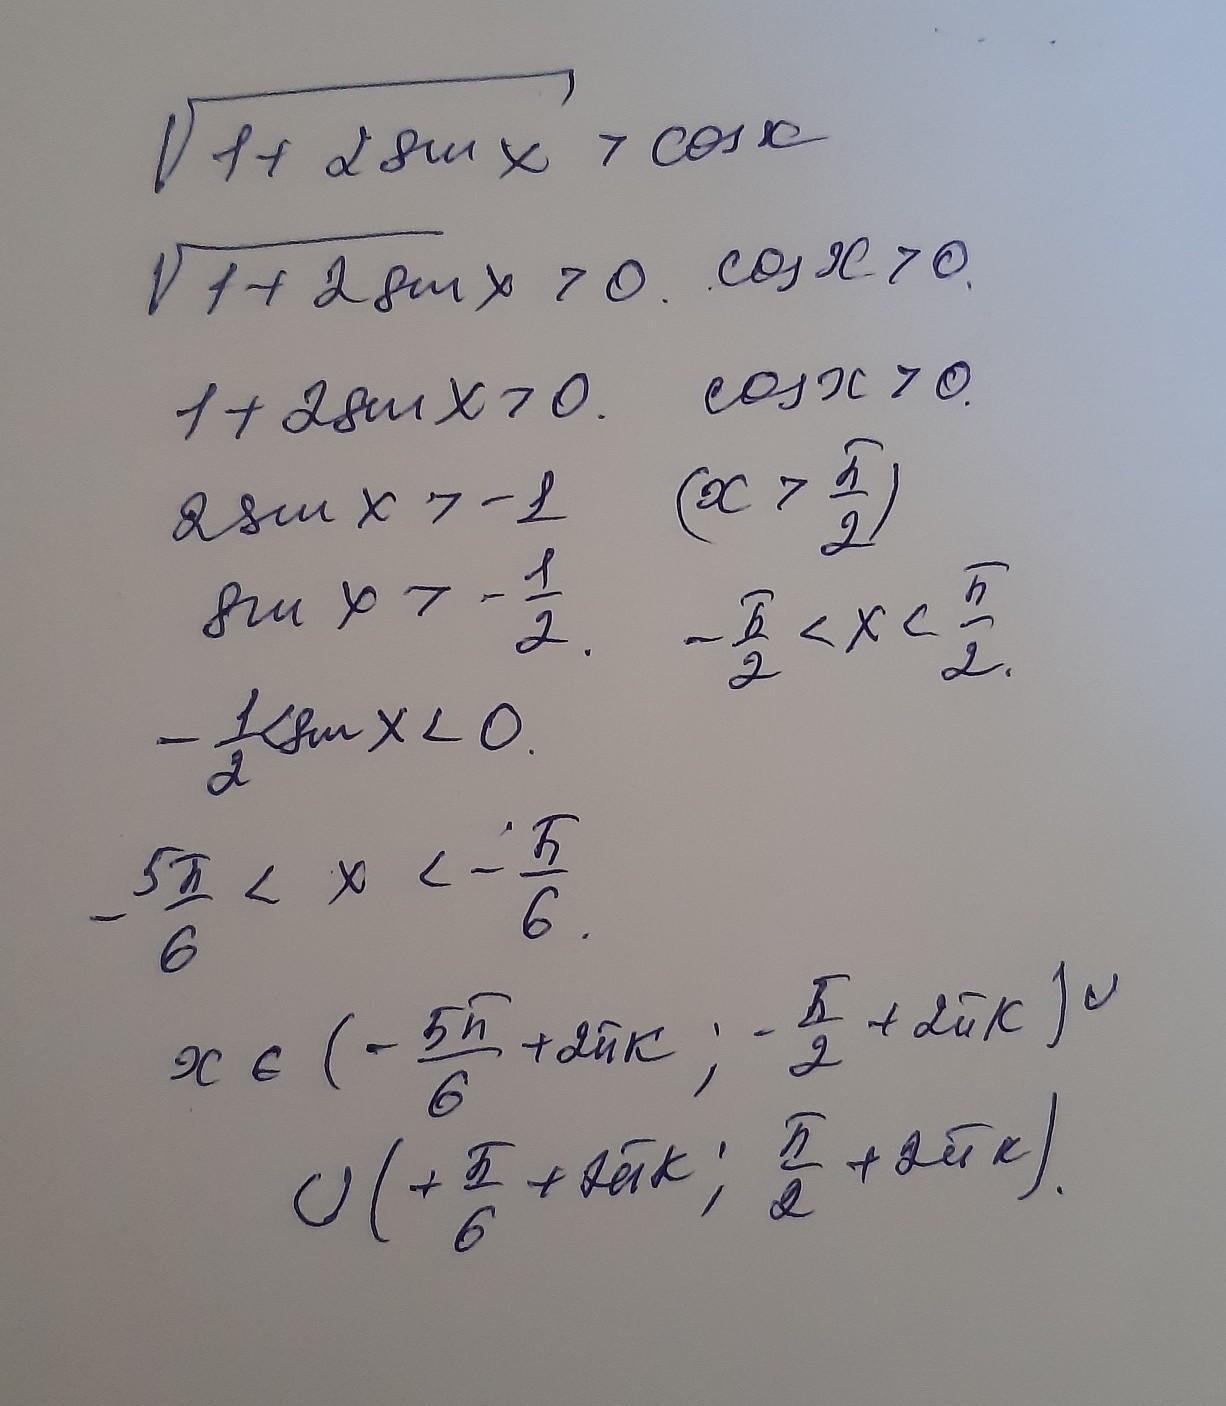 √(1 + 2 sin x) > cos x
√(1 + 2 sin x) > 0. cos x > 0.
1 + 2 sin x > 0. cos x > 0.
2 sin x > -1 (x > π/2)
sin x > -1/2. -π/2 < x < π/2.
-1/2 < sin x < 0.
-5π/6 < x < -π/6.
x ∈ (-5π/6 + 2πk ; -π/2 + 2πk) ∪
∪ (+π/6 + 2πk ; π/2 + 2πk).